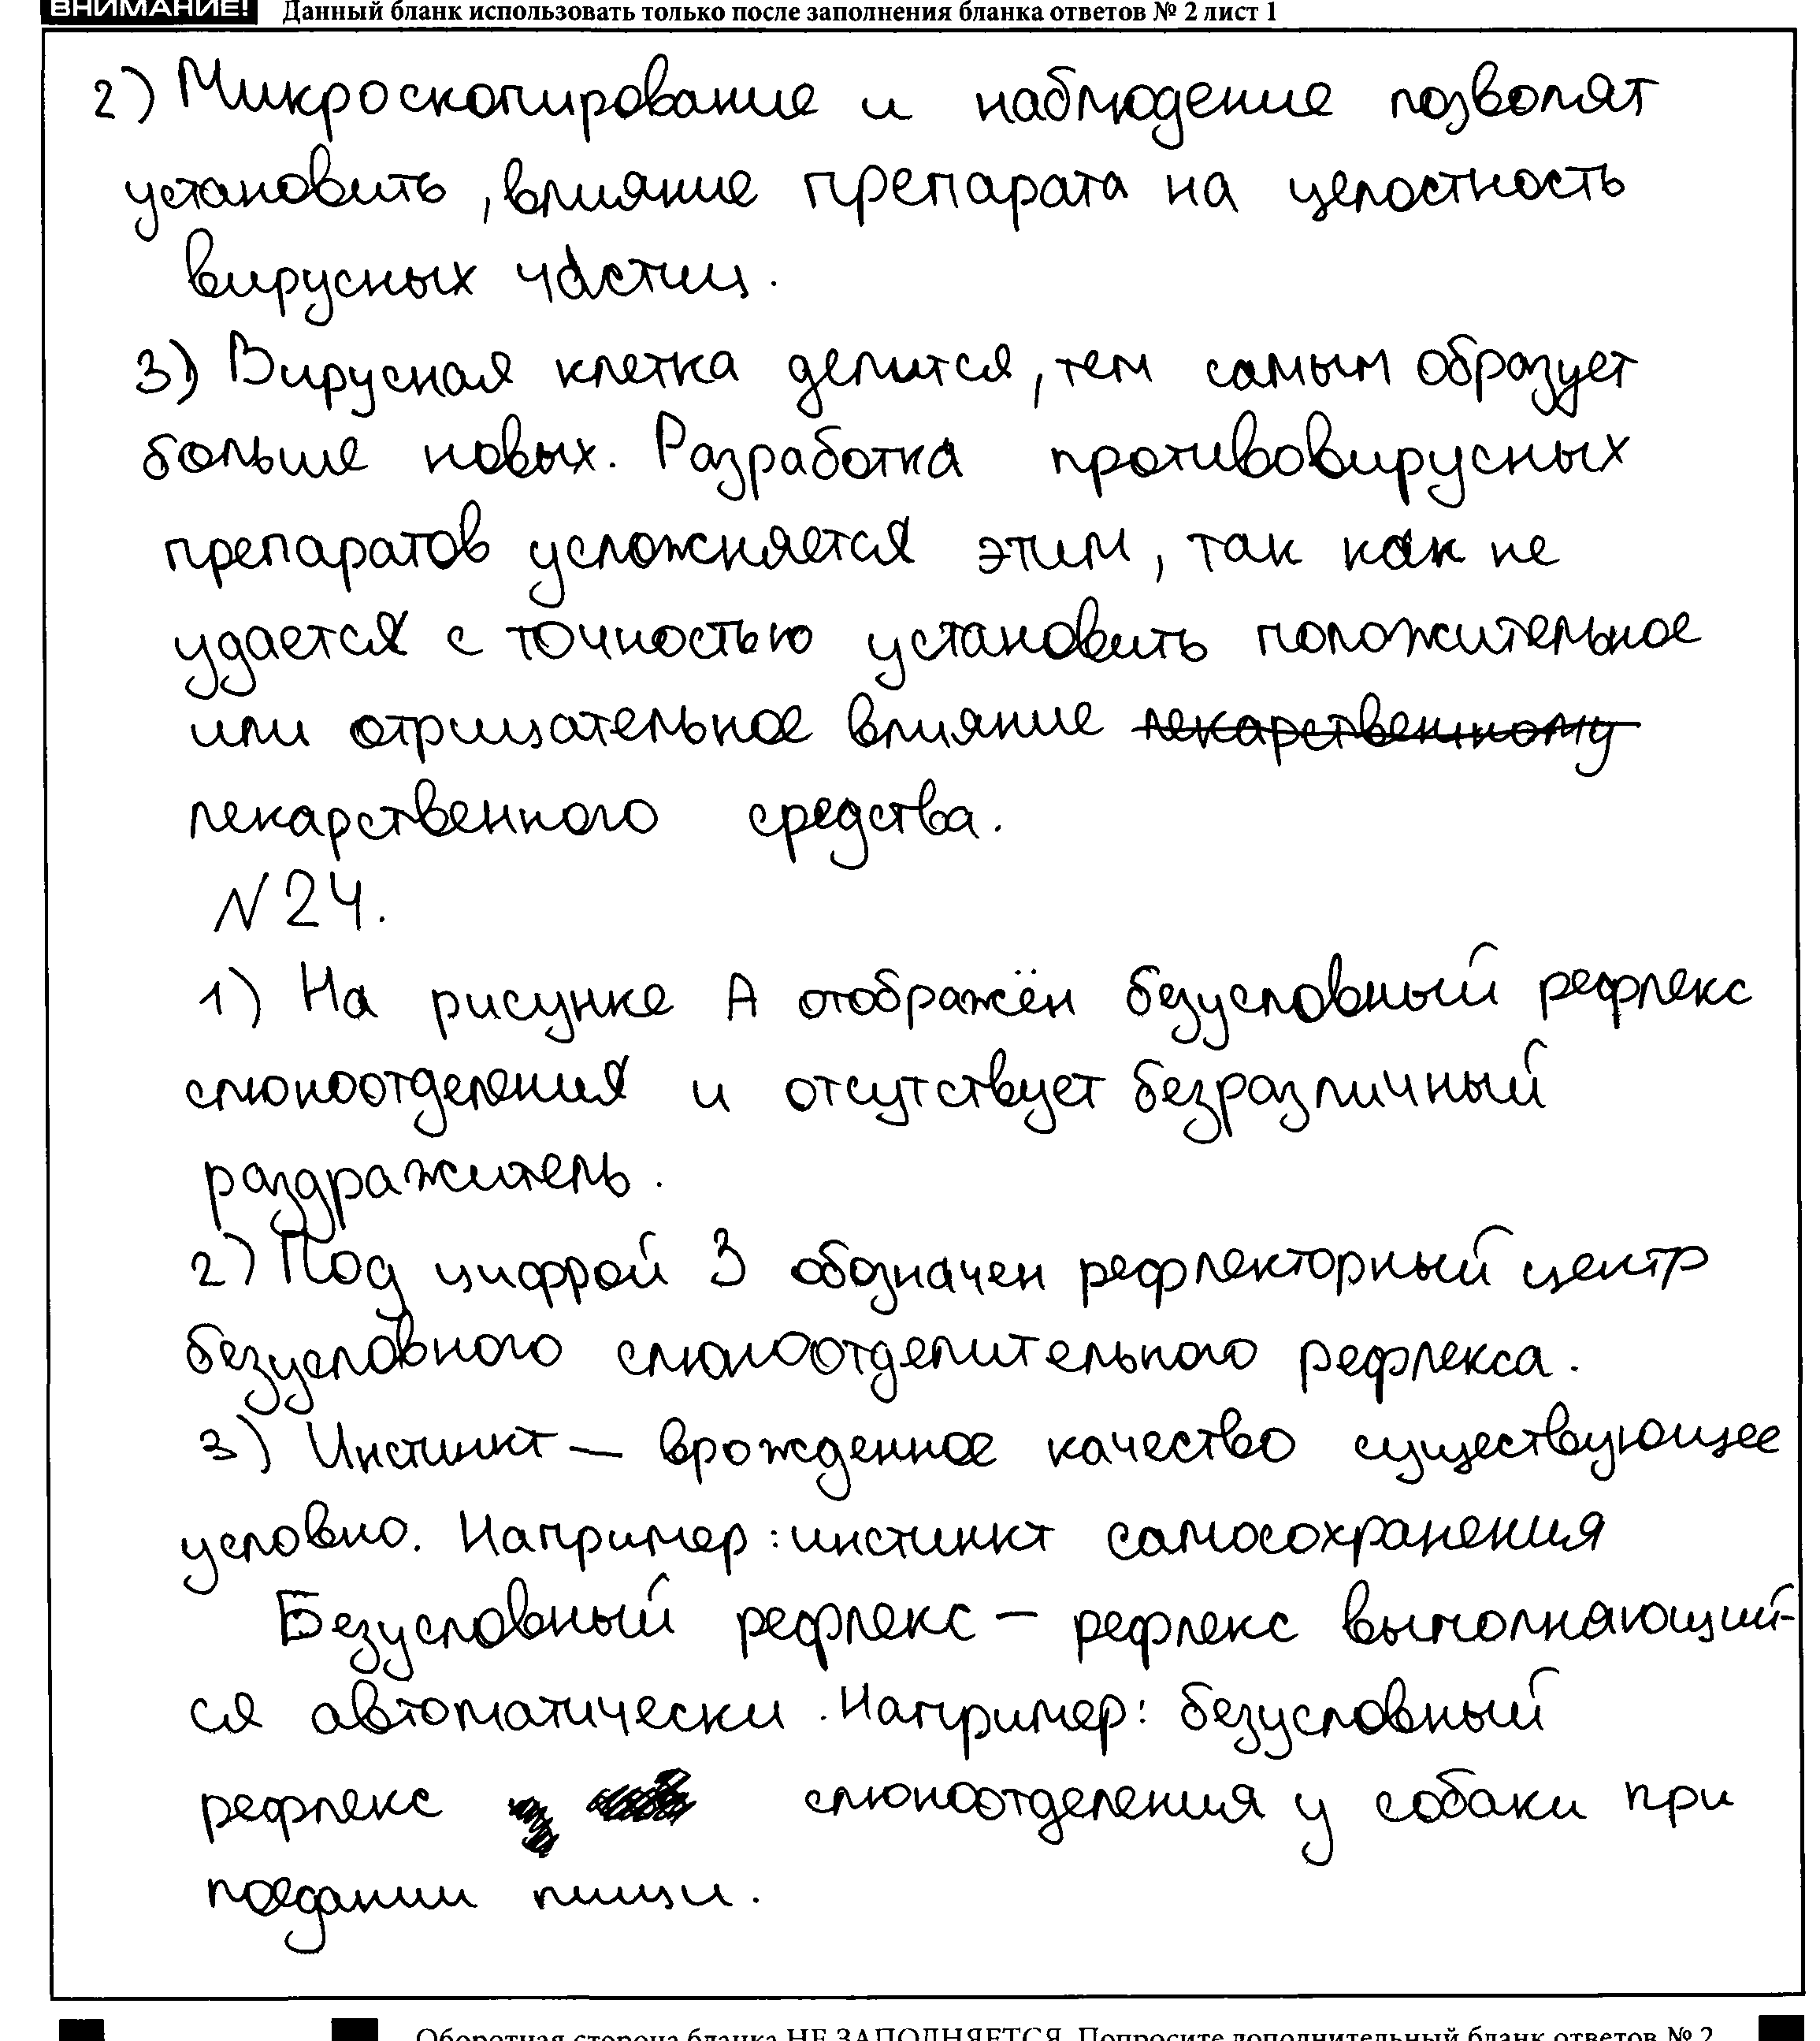 ВНИМАНИЕ! Данный бланк использовать только после заполнения бланка ответов № 2 лист 1
2) Микроскопирование и наблюдение позволят
установить, влияние препарата на целостность
вирусных частиц.
3) Вирусная клетка делится, тем самым образует
больше новых. Разработка противовирусных
препаратов усложняется этим, так как не
удается с точностью установить положительное
или отрицательное влияние лекарственному
лекарственного средства.
№24.
1) На рисунке А отображён безусловный рефлекс
слюноотделения и отсутствует безразличный
раздражитель.
2) Под цифрой 3 обозначен рефлекторный центр
безусловного слюноотделительного рефлекса.
3) Инстинкт — врожденное качество существующее
условно. Например: инстинкт самосохранения
Безусловный рефлекс — рефлекс выполняющий-
ся автоматически. Например: безусловный
рефлекс слюноотделения у собаки при
поедании пищи.
Оборотная сторона бланка НЕ ЗАПОЛНЯЕТСЯ. Попросите дополнительный бланк ответов № 2